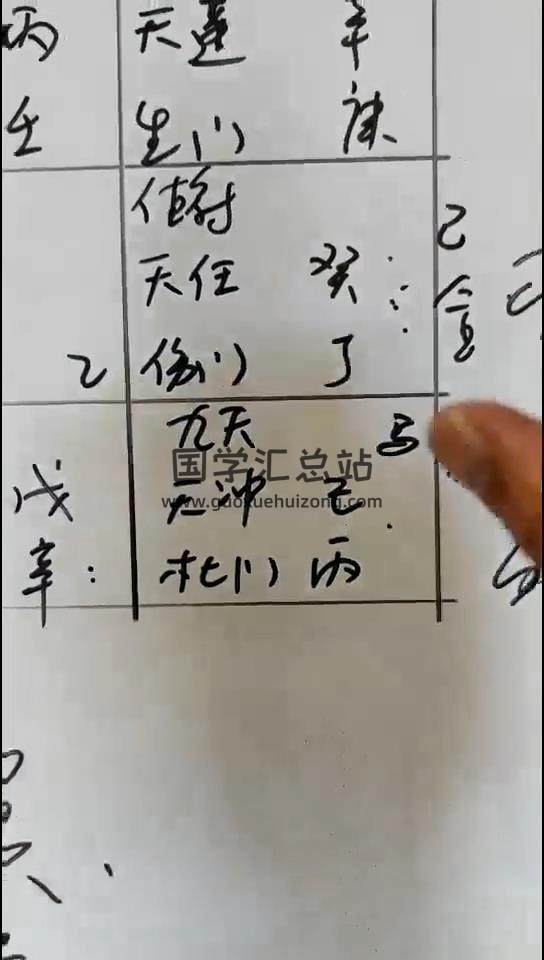 丙 天蓬 辛
壬 生门 庚
值符
天任 癸 己
乙 伤门 丁
九天 马
国学汇总站
www.guoxuehuizong.com
戊 天冲
辛: 杜门 丙